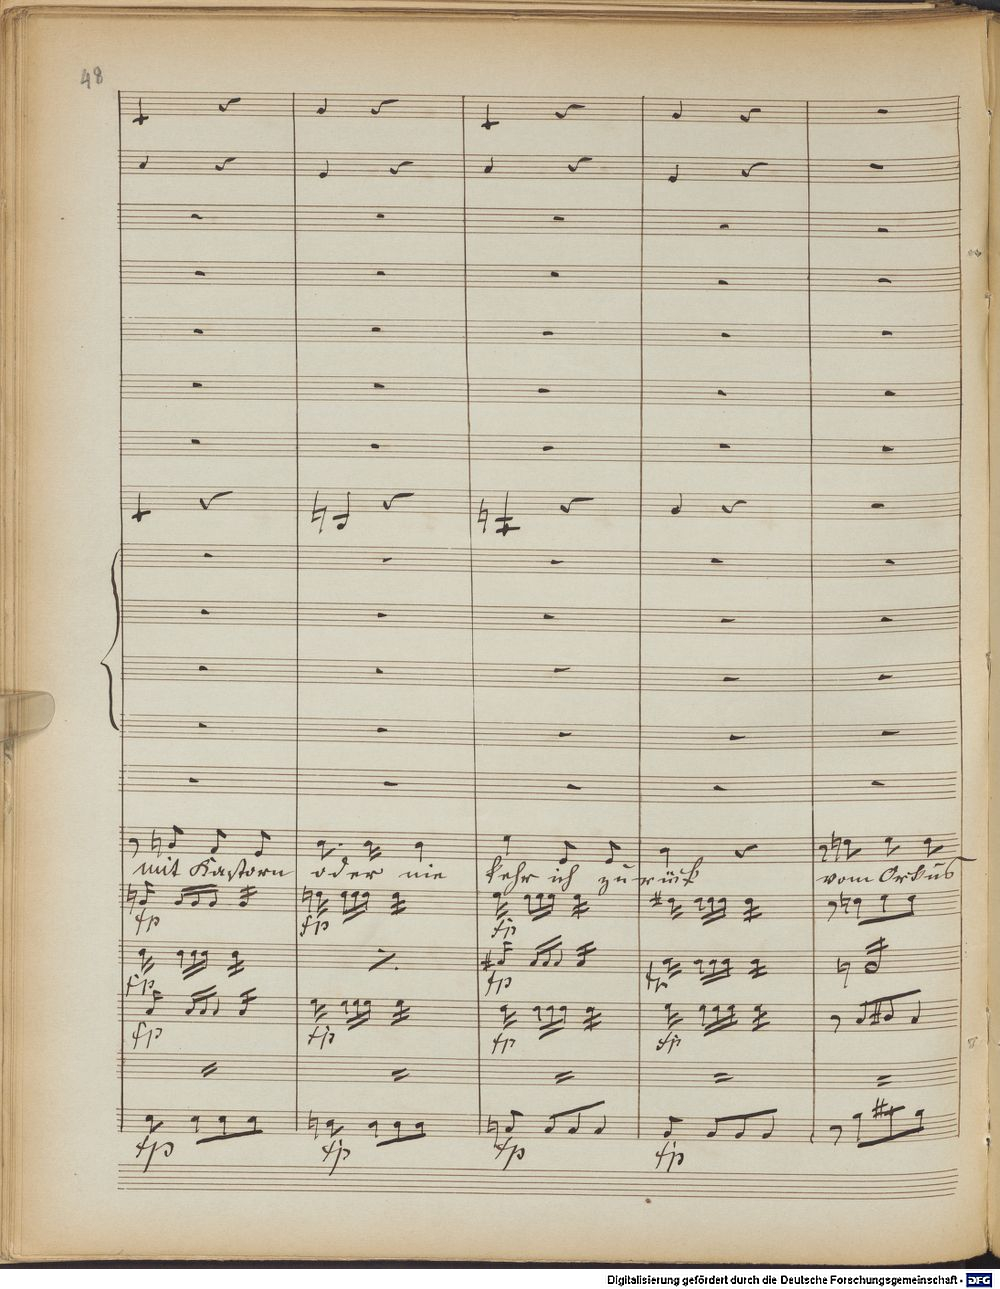 48
mit Kastorn oder nie kehr ich zurük vom Orkus
fp fp fp
fp fp fp
fp fp fp fp
fp fp fp fp
Digitalisierung gefördert durch die Deutsche Forschungsgemeinschaft - DFG